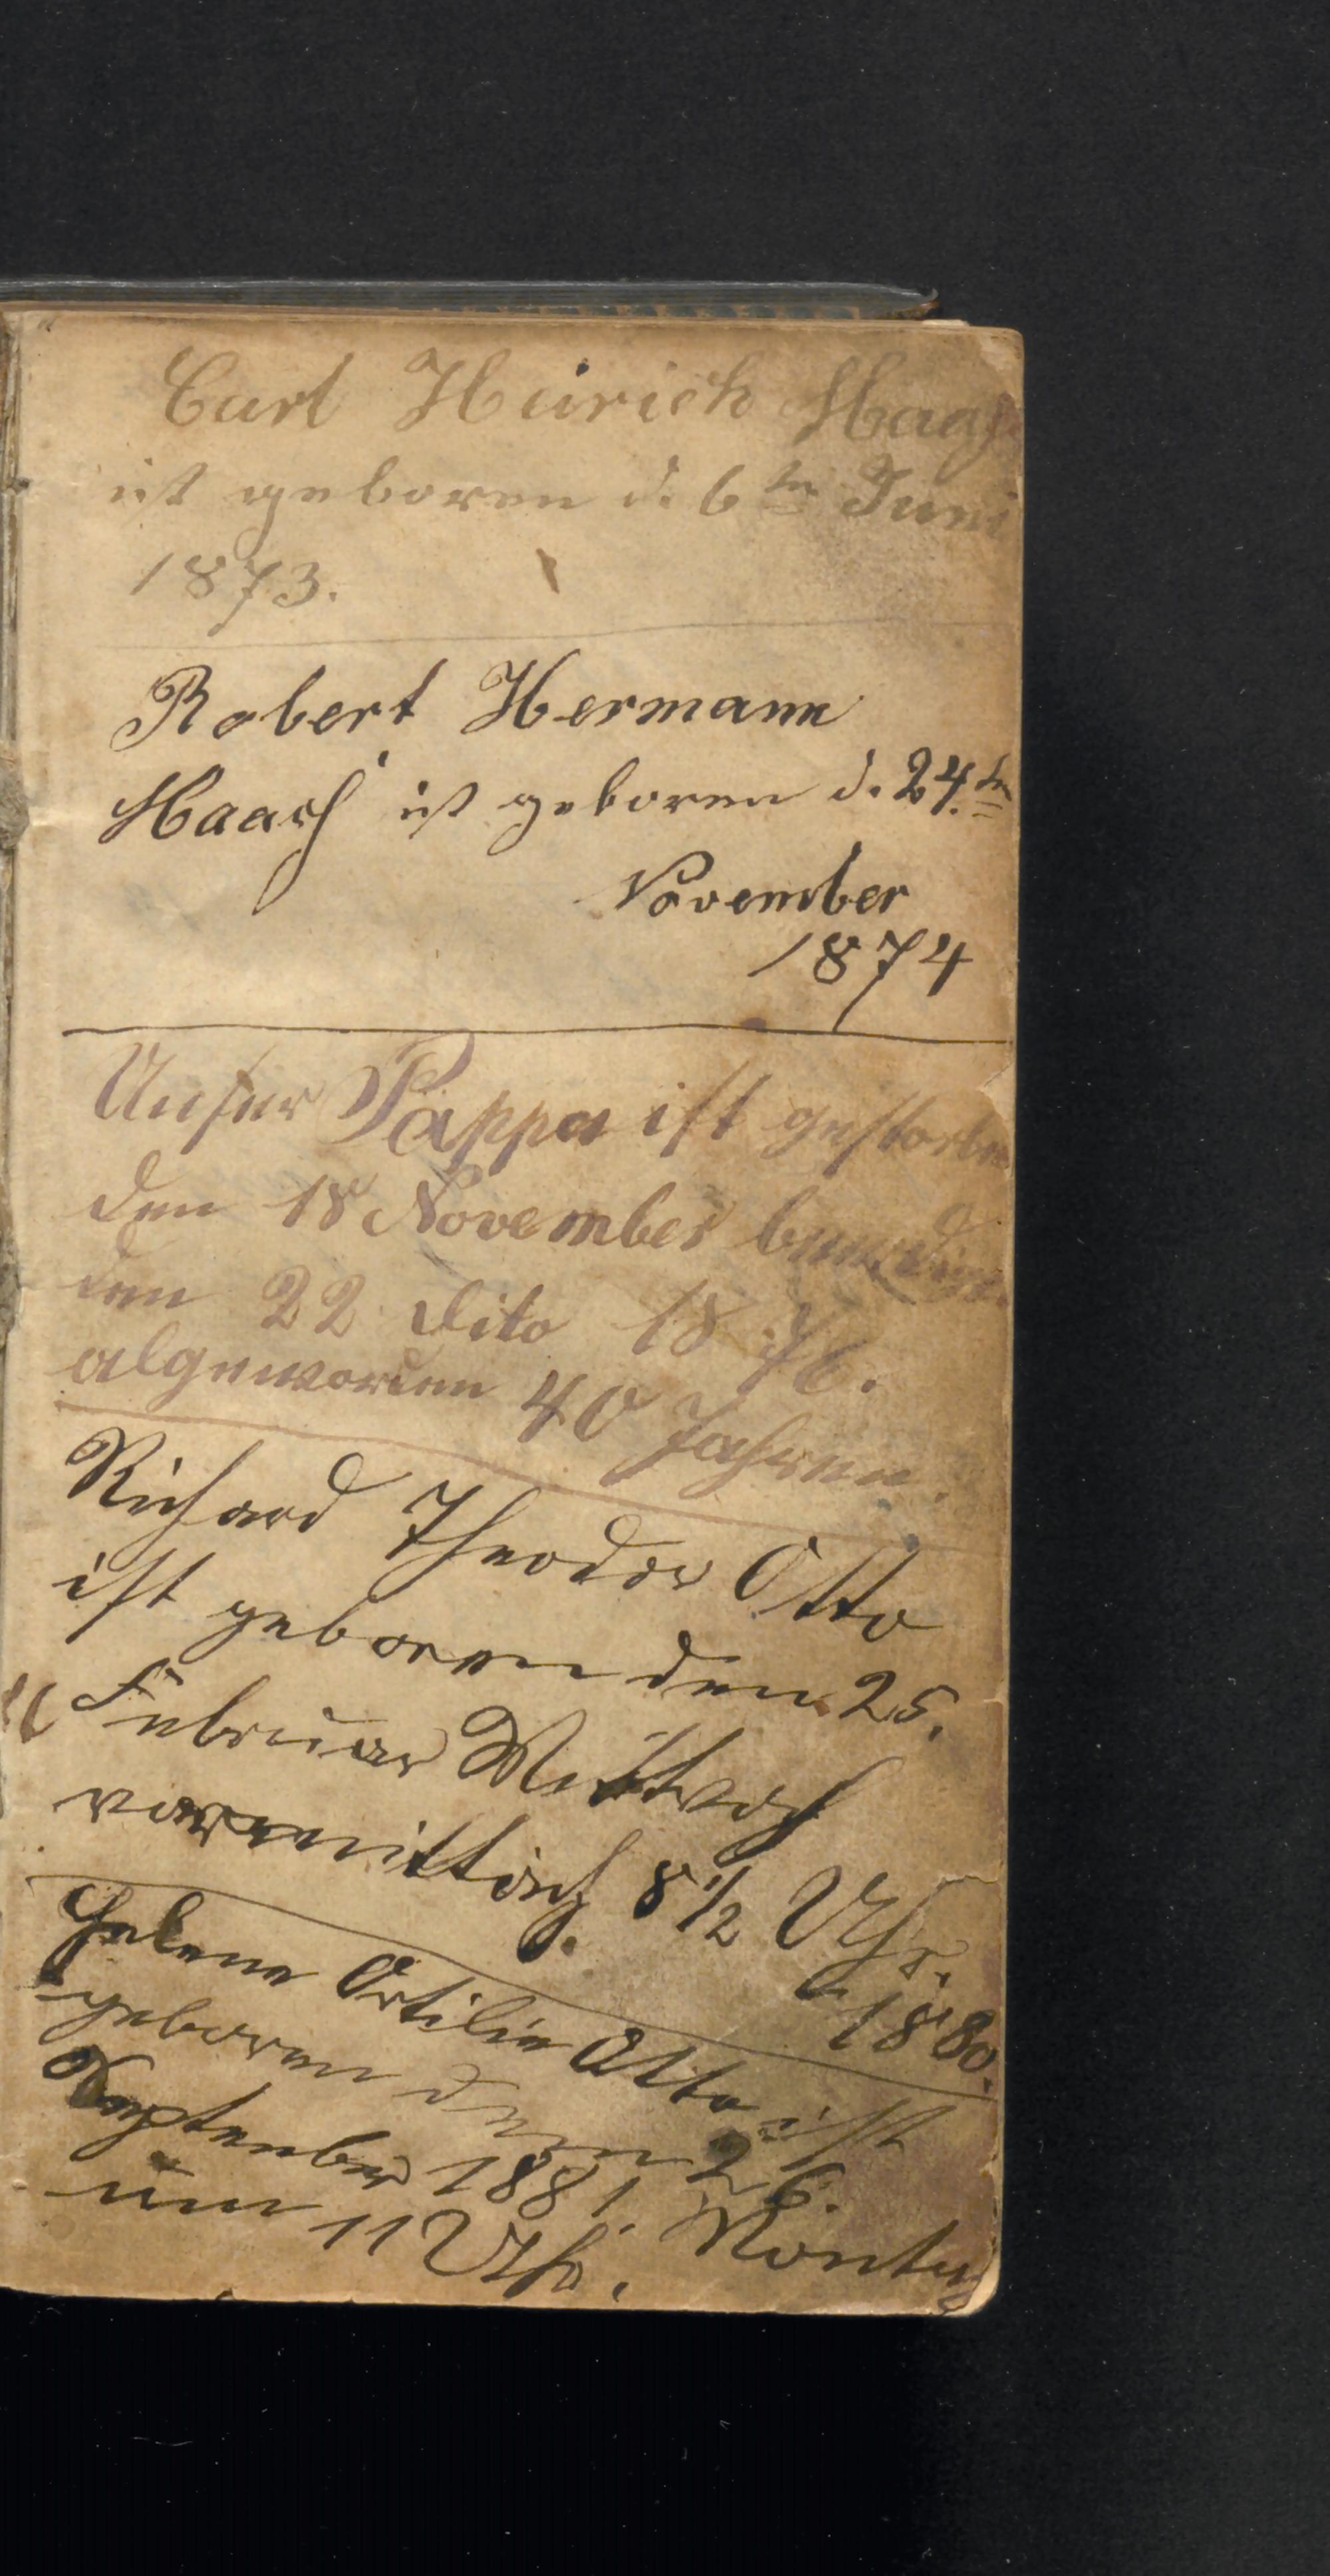 Carl Heinrich Haase
ist geboren d. 6ten Juni
1873.
Robert Hermann
Haase ist geboren d. 24.ten
November
1874
Unser Pappa ist gestorben
den 18 November
den 22 dito 1876.
algeworden 40 Jahren.
Richard Theodor Otto
ist geboren den 25.
Februar Mittwoch
vormittisch 8 1/2 Uhr.
1880.
Helene Ortilie Otto ist
geboren denn 26.
September 1881 Montag
um 11 Uhr.